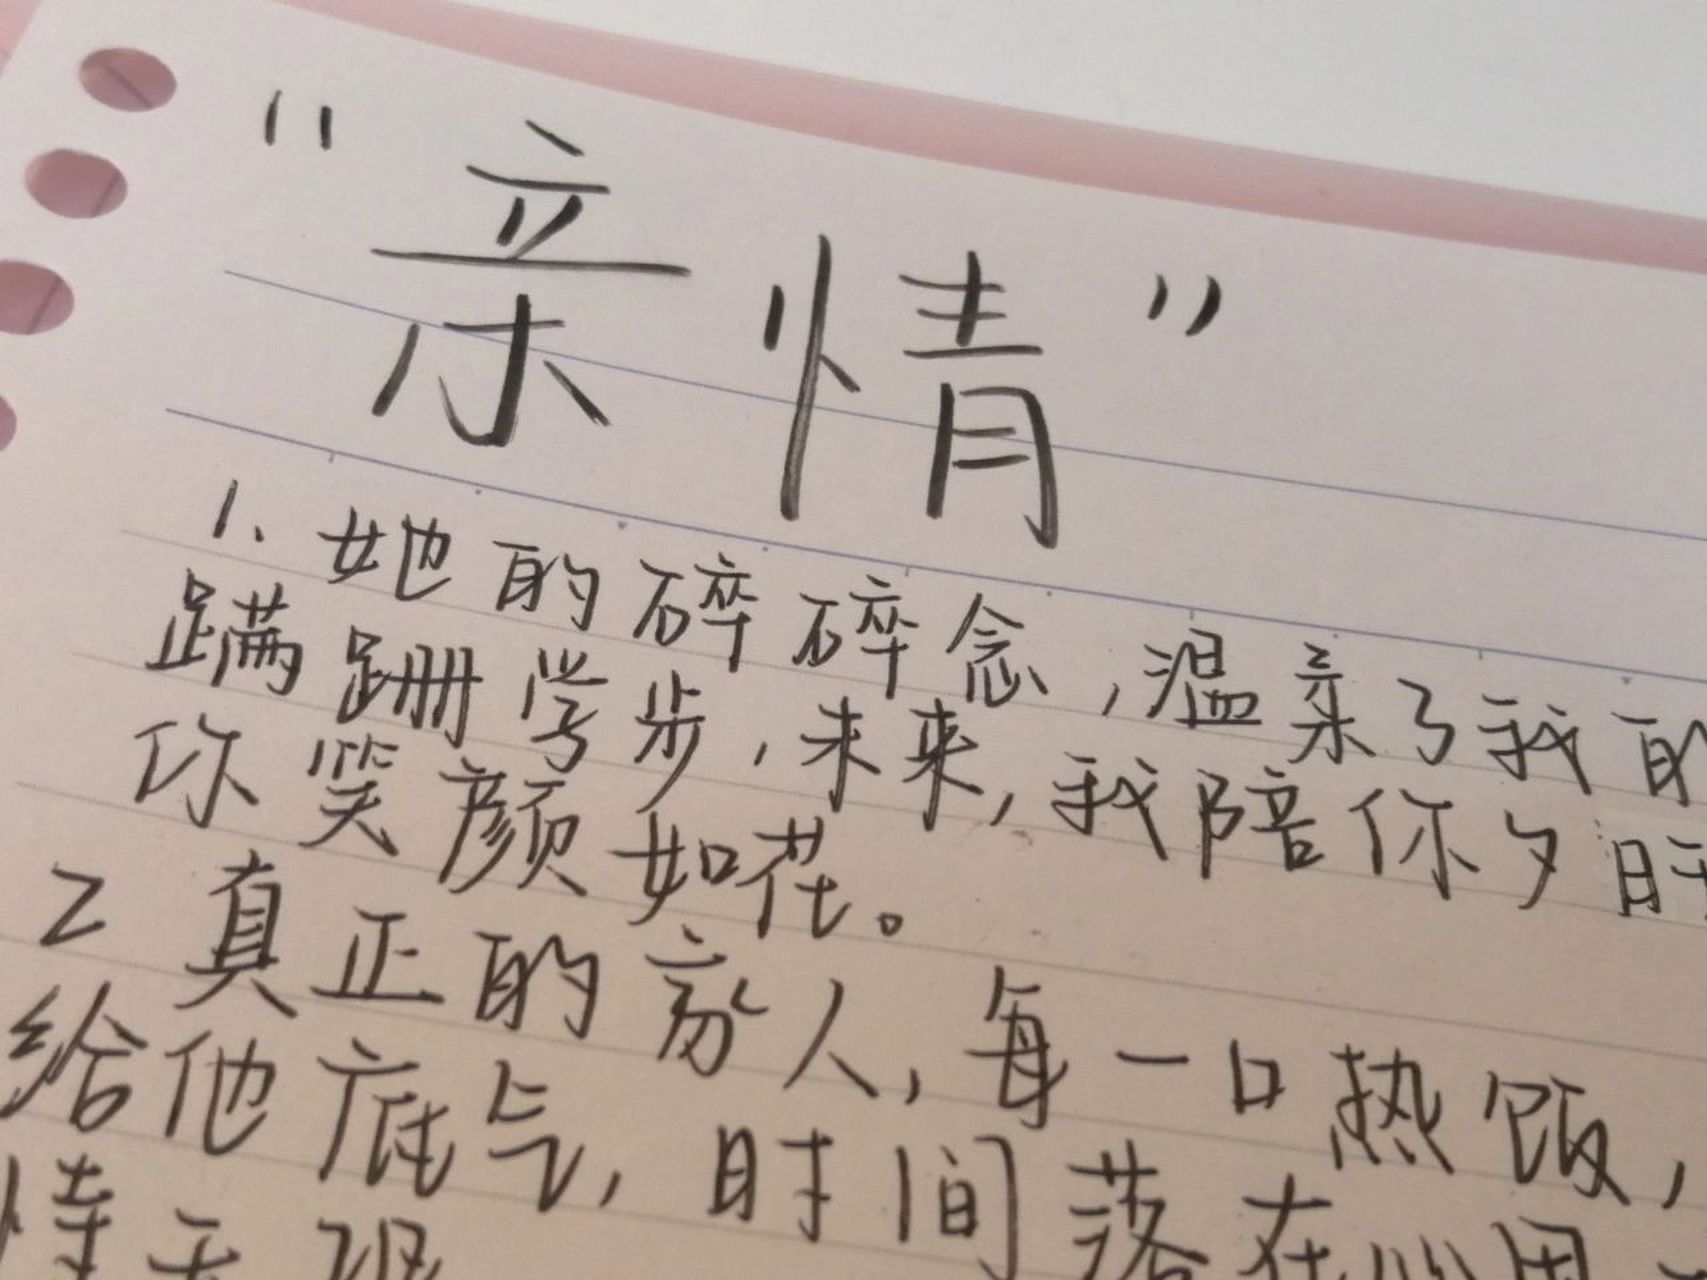 "亲情"
1、她的碎碎念,温柔了我的
蹒跚学步,未来,我陪你夕阳
你笑颜如花。
2 真正的家人,每一口热饭,
给他底气,时间落在
情无